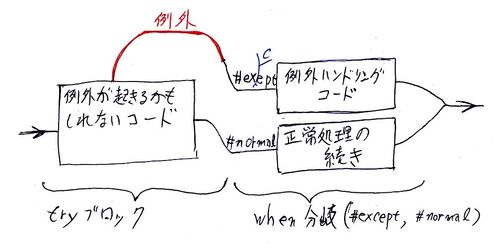 例外
c
#exept
例外ハンドリング
コード
例外が起きるかも
しれないコード
#normal
正常処理の
続き
tryブロック
when 分岐(#except, #normal)